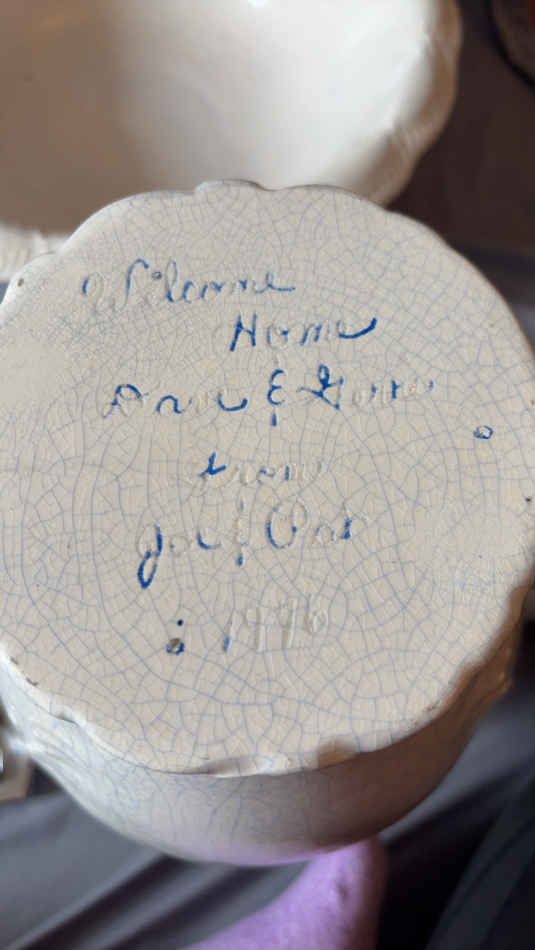 Welcome
Home
Dave &
from
Joe & Pat
1976